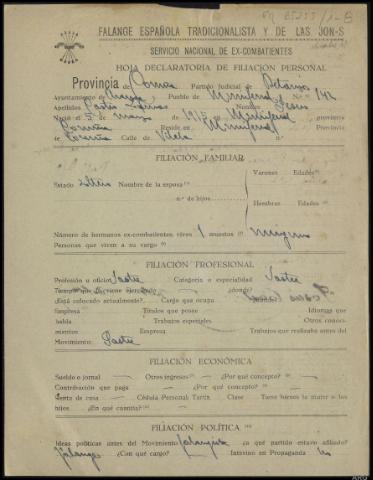 FALANGE ESPAÑOLA TRADICIONALISTA Y DE LAS JON-S
SERVICIO NACIONAL DE EX-COMBATIENTES
HOJA DECLARATORIA DE FILIACIÓN PERSONAL
Provincia de Coruña Partido Judicial de Betanzos
Ayuntamiento de Pueblo de N.º 142
Apellidos Nombre Jesus
Nació el 5 de marzo de 1915 en Provincia
Coruña Reside en Provincia
de Coruña Calle de Vilela n.º
FILIACIÓN FAMILIAR
Varones Edades
Estado Nombre de la esposa
n.º de hijos
Hembras Edades
Número de hermanos ex-combatientes vivos 1 muertos ninguno
Personas que viven a su cargo
FILIACIÓN PROFESIONAL
Profesión u oficio Sastre Categoría o especialidad Sastre
Tiempo que ¿dónde?
¿Está colocado actualmente? Cargo que ocupa
Empresa Títulos que posee Idiomas que
habla Trabajos especiales Otros conoci-
mientos Empresa Trabajos que realizaba antes del
Movimiento Sastre
FILIACIÓN ECONÓMICA
Sueldo o jornal Otros ingresos ¿Por qué concepto?
Contribución que paga ¿Por qué concepto?
Renta de casa Cédula Personal Tarifa Clase Tiene bienes la mujer o los
hijos ¿En qué cuantía?
FILIACIÓN POLÍTICA
Ideas políticas antes del Movimiento Falangista ¿a qué partido estuvo afiliado?
Falange ¿Con qué cargo? Intervino en Propaganda No